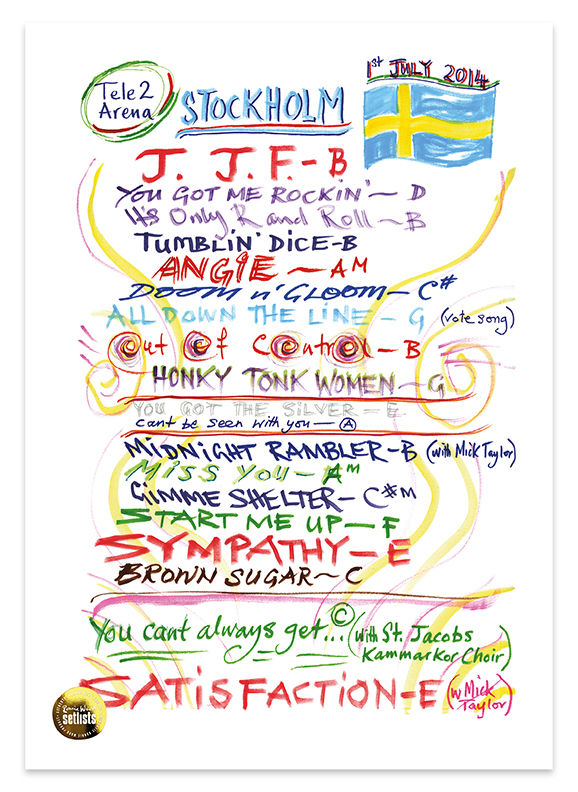 1st JULY 2014
Tele2
Arena
STOCKHOLM
J. J. F. - B
YOU GOT ME ROCKIN' - D
It's Only R and Roll - B
TUMBLIN' DICE - B
ANGiE - AM
DOOM n' GLOOM - C#
ALL DOWN THE LINE - G (vote song)
Out Of Control - B
HONKY TONK WOMEN - G
YOU GOT THE SILVER - E
cant be seen with you - A
MiDNiGHT RAMBLER - B (with Mick Taylor)
MiSS YOU - Am
GiMME SHELTER - C#M
START ME UP - F
SYMPATHY - E
BROWN SUGAR - C
You cant always get... C (with St. Jacobs
Kammarkor Choir)
SATiSFACTION - E (w Mick
Taylor)
Ronnie Wood
setlists